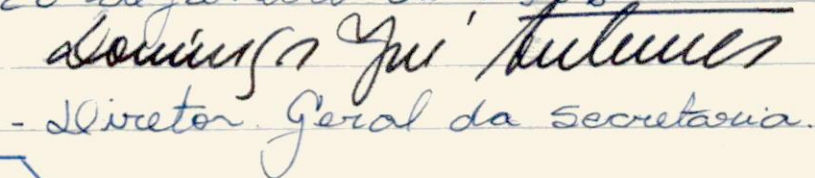 Domingos José Antunes
- Diretor Geral da Secretaria.